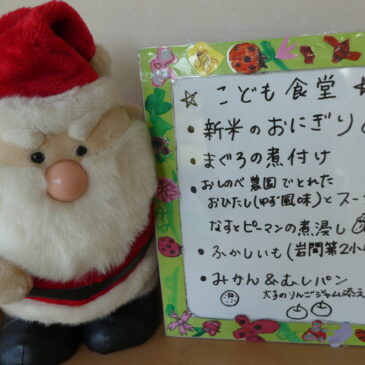 ☆ こども食堂 ☆
• 新米のおにぎり
• まぐろの煮付け
• おしのべ農園でとれた
おひたし(ゆず風味)とスー
なすとピーマンの煮浸し
• ふかしいも(岩間第2小
• みかん&むしパン
大子のりんごジャム添え